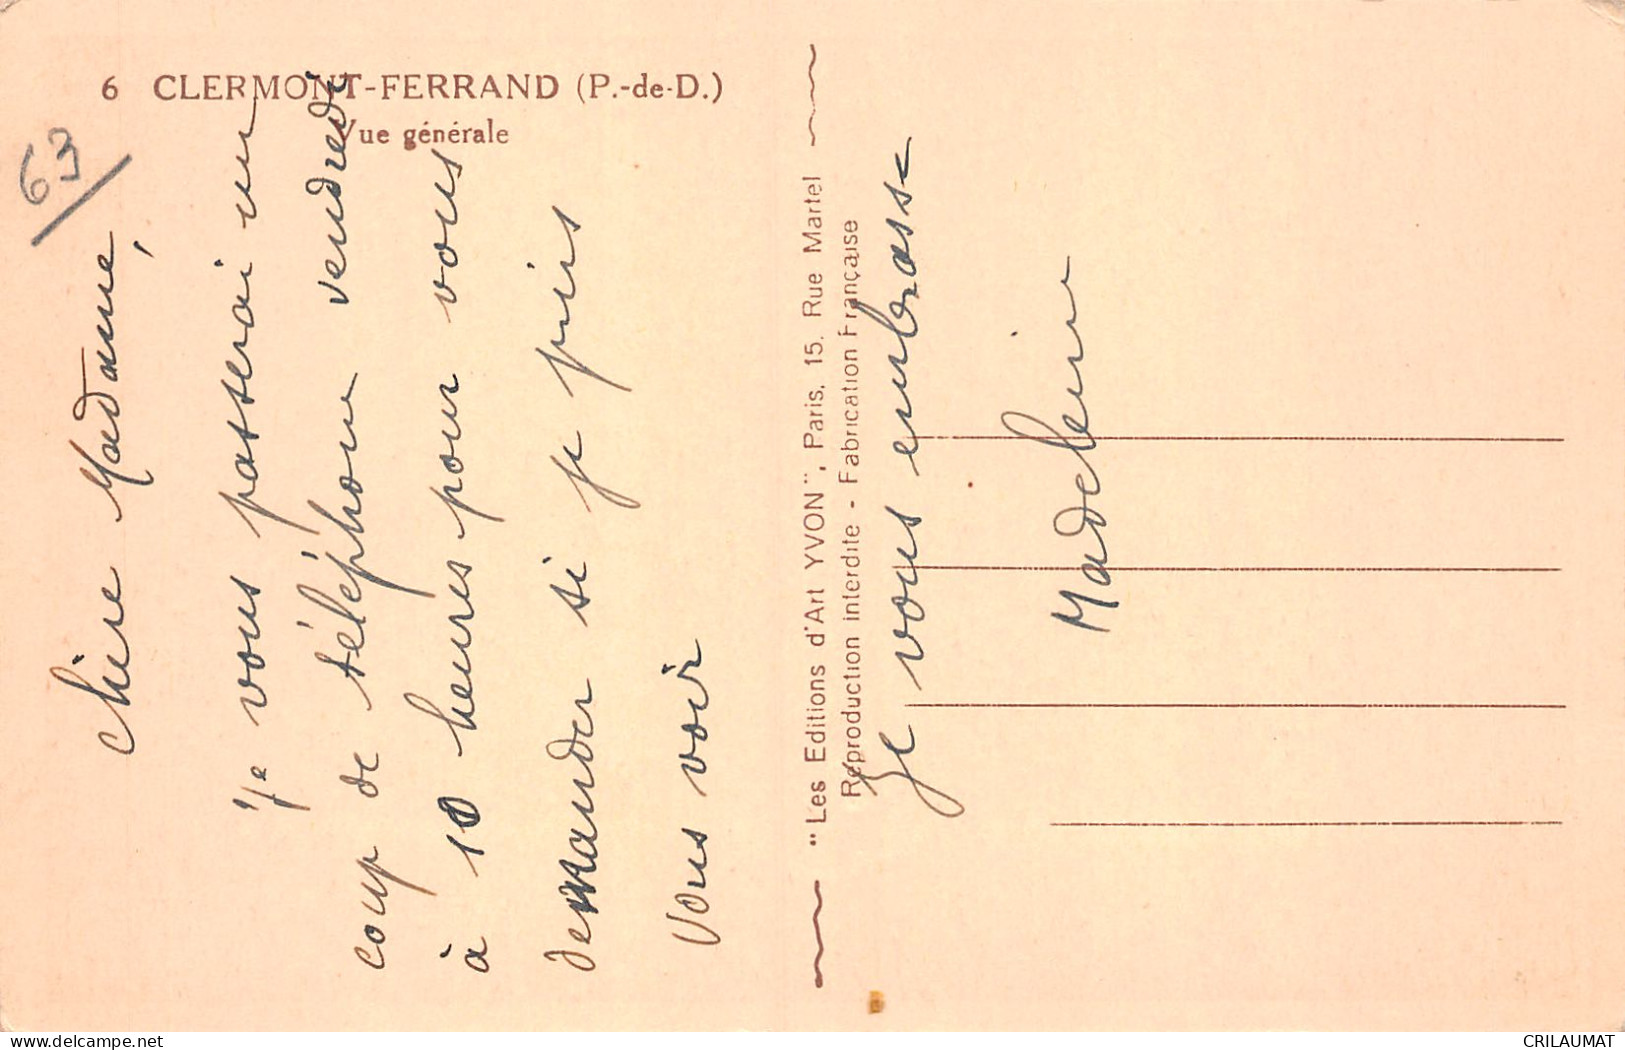 6 CLERMONT-FERRAND (P.-de-D.)
Vue générale
63
Chère Madame,
Je vous passerai un
coup de téléphone vendredi
à 10 heures pour vous
demander si je puis
vous voir
"Les Editions d'Art YVON", Paris, 15, Rue Martel
Reproduction interdite - Fabrication Française
Je vous embrasse
Madeleine
www.delcampe.net
CRILAUMAT